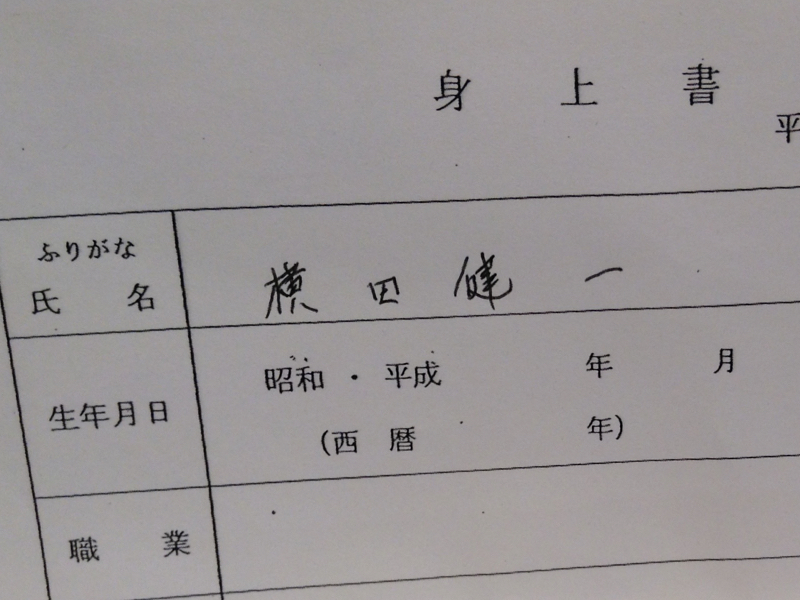 身上書
平
ふりがな
氏名 横田健一
生年月日 昭和・平成 年 月
(西暦 年)
職業